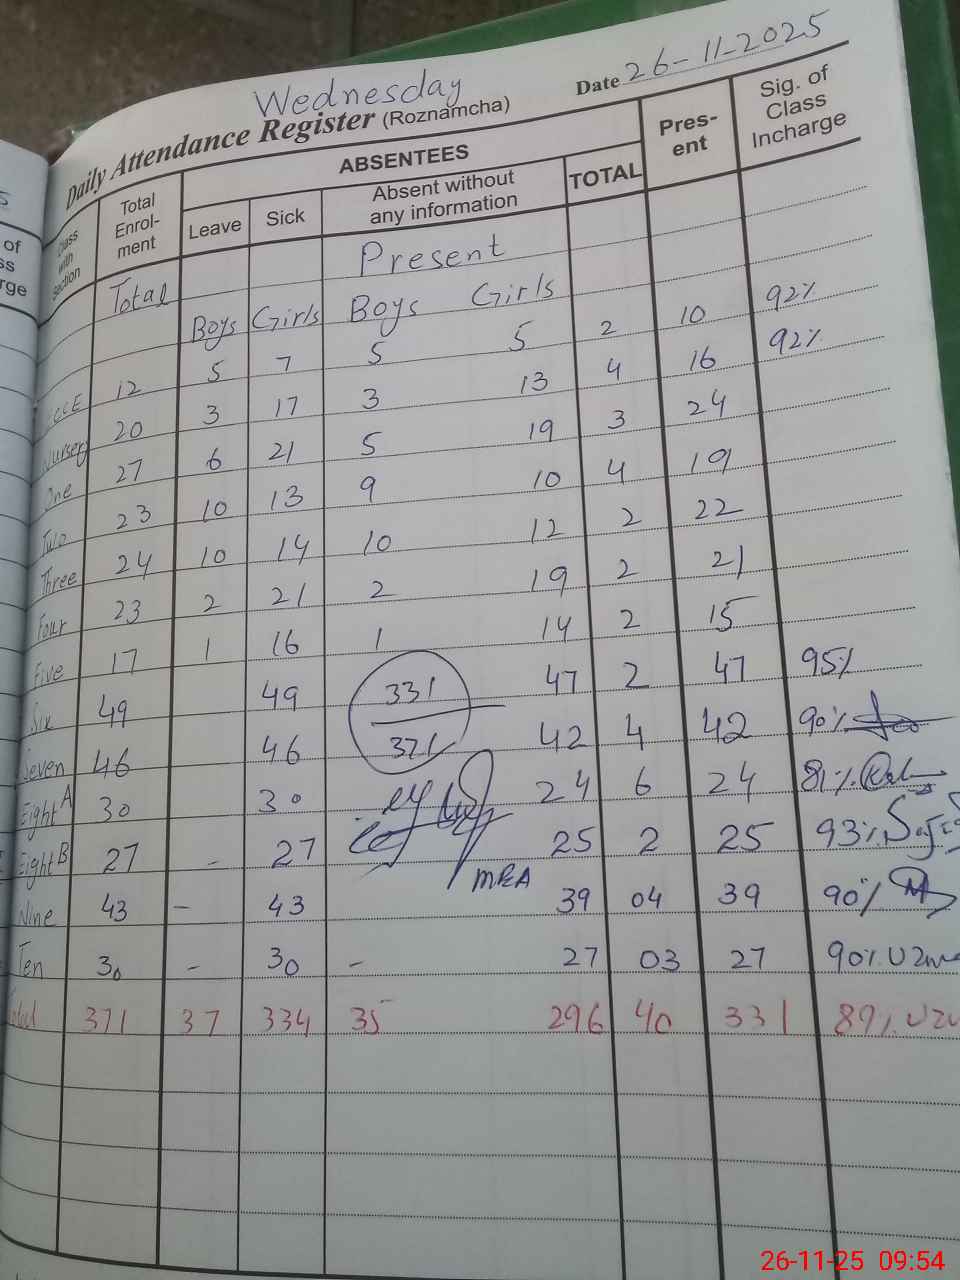 5
of
ss
rge
Wednesday
Daily Attendance Register (Roznamcha) Date 26-11-2025
Class with Section
Total Enrol- ment
ABSENTEES
Leave Sick Absent without any information TOTAL
Pres- ent
Sig. of Class Incharge
Present
Total Boys Girls Boys Girls
ECE 12 5 7 5 5 2 10 92%
Nursery 20 3 17 3 13 4 16 92%
One 27 6 21 5 19 3 24
Two 23 10 13 9 10 4 19
Three 24 10 14 10 12 2 22
Four 23 2 21 2 19 2 21
Five 17 1 16 1 14 2 15
Six 49 49 47 2 47 95%
331
371
Seven 46 46 42 4 42 90%
Eight A 30 30 24 6 24 81%
Eight B 27 - 27 25 2 25 93%
MEA
Nine 43 - 43 39 04 39 90%
Ten 30 - 30 - 27 03 27 90% Uzma
Total 371 37 334 35 296 40 331 89% Uzu
26-11-25 09:54